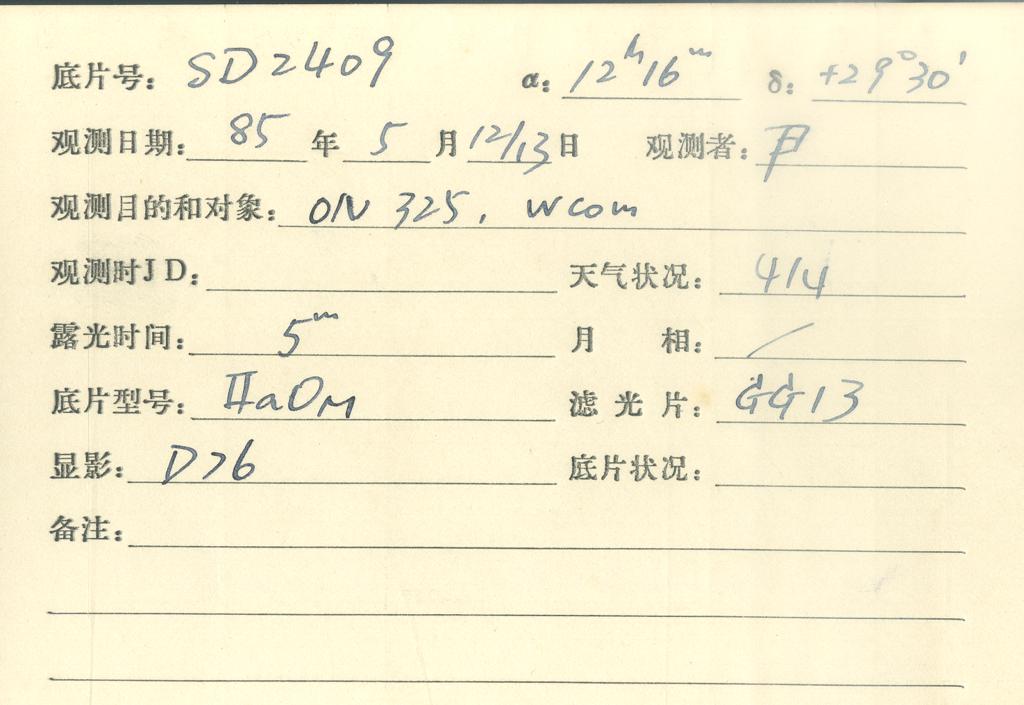 底片号: SD2409 α: 12ʰ16ᵐ δ: +29°30′
观测日期: 85 年 5 月 12/13 日 观测者:
观测目的和对象: ON 325, W com
观测时JD: 天气状况: 4/4
露光时间: 5ᵐ 月 相: /
底片型号: ⅡaOM 滤光片: GG13
显影: D76 底片状况:
备注: